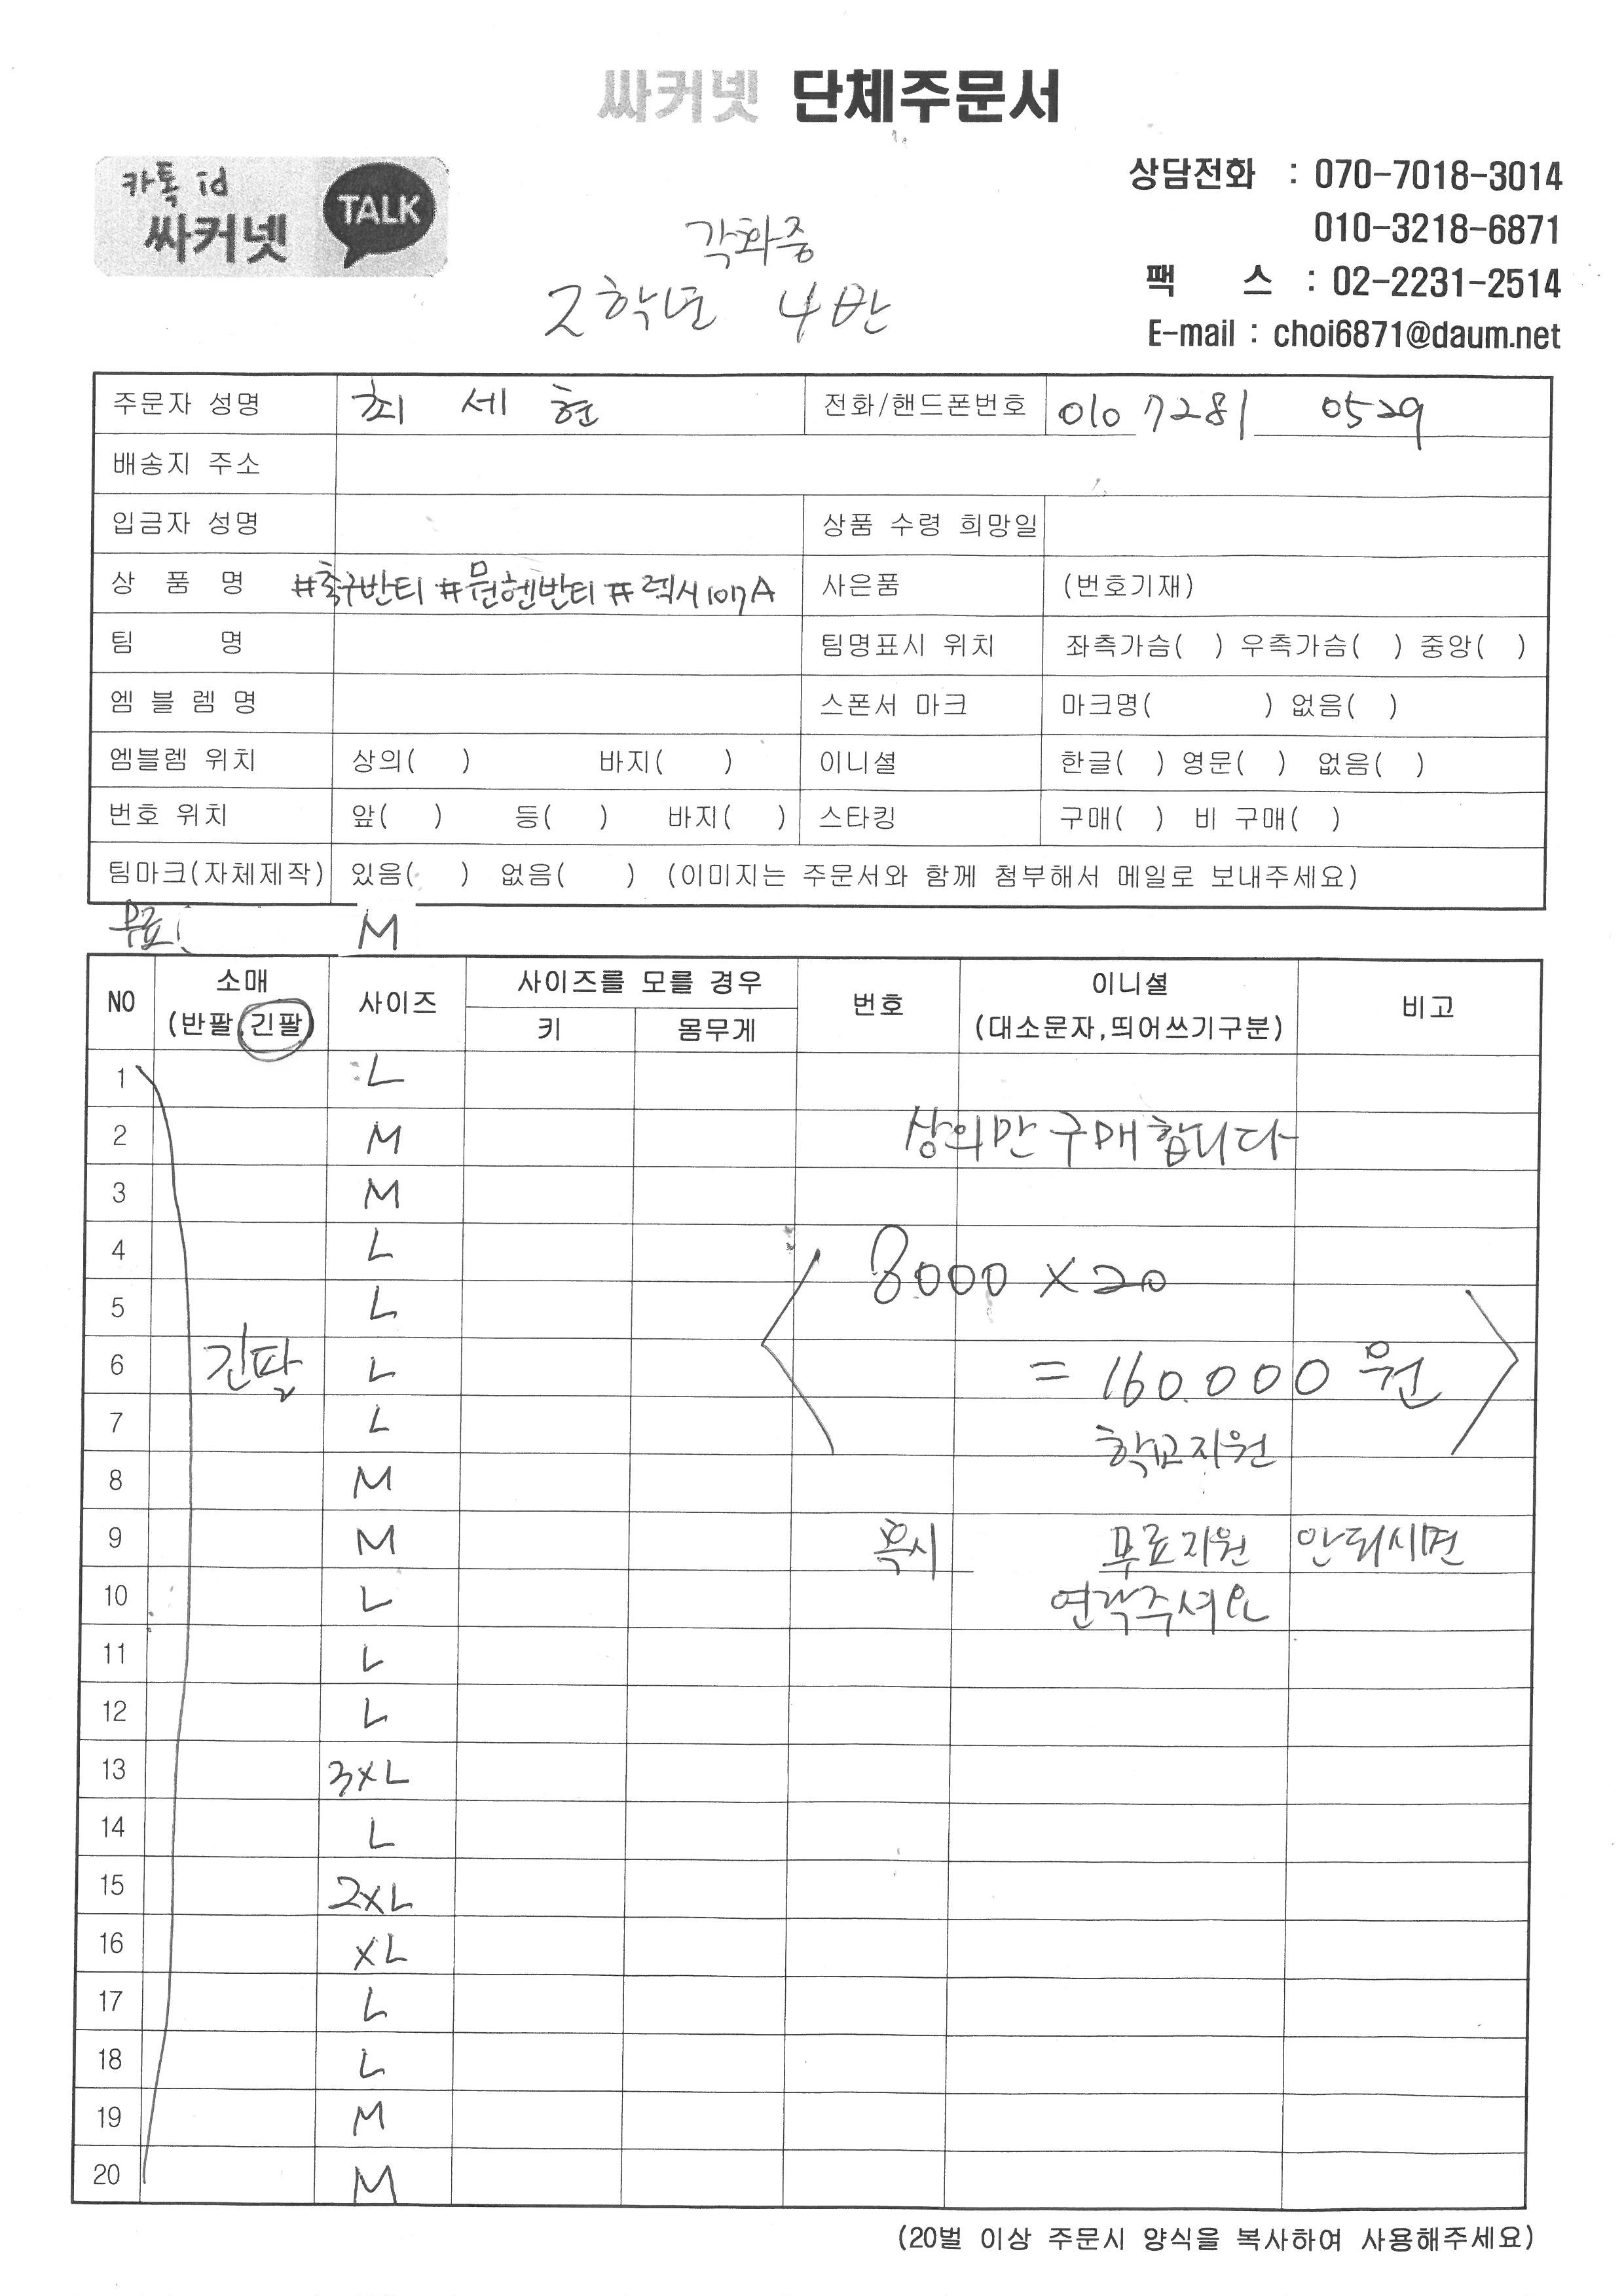 싸커넷 단체주문서
카톡 id
싸커넷
TALK
상담전화 : 070-7018-3014
010-3218-6871
팩 스 : 02-2231-2514
E-mail : choi6871@daum.net
각화중
2학년 4반
주문자 성명 최 세 현 전화/핸드폰번호 010 7281 0529
배송지 주소
입금자 성명 상품 수령 희망일
상 품 명 #축구반티 #뮌헨반티 #렉시107A 사은품 (번호기재)
팀 명 팀명표시 위치 좌측가슴( ) 우측가슴( ) 중앙( )
엠 블 렘 명 스폰서 마크 마크명( ) 없음( )
엠블렘 위치 상의( ) 바지( ) 이니셜 한글( ) 영문( ) 없음( )
번호 위치 앞( ) 등( ) 바지( ) 스타킹 구매( ) 비 구매( )
팀마크(자체제작) 있음( ) 없음( ) (이미지는 주문서와 함께 첨부해서 메일로 보내주세요)
무료! M
NO 소매 (반팔,긴팔) 사이즈 사이즈를 모를 경우 키 몸무게 번호 이니셜 (대소문자,띄어쓰기구분) 비고
1 L
2 M 상의만 구매합니다
3 M
4 L 8000 x 20
5 L
6 긴팔 L = 160.000 원
7 L 학교지원
8 M
9 M 혹시 무료지원 안되시면
10 L 연락주세요
11 L
12 L
13 3XL
14 L
15 2XL
16 XL
17 L
18 L
19 M
20 M
(20벌 이상 주문시 양식을 복사하여 사용해주세요)